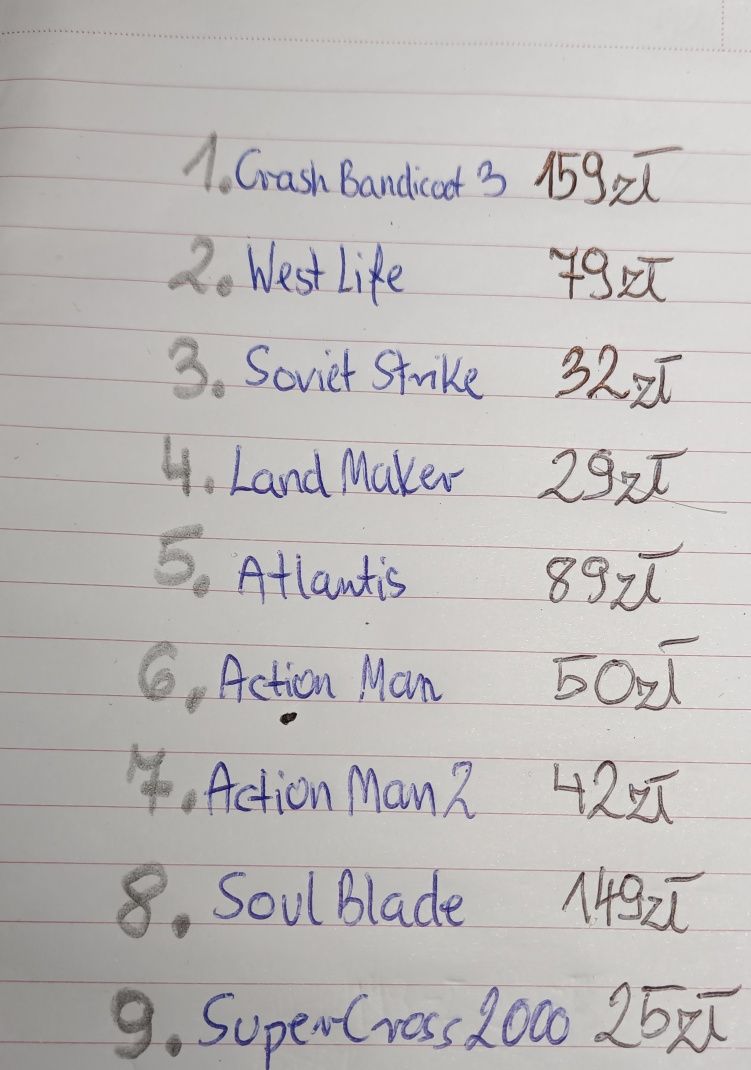 1. Crash Bandicoot 3 159zł
2. West Life 79zł
3. Soviet Strike 32zł
4. Land Maker 29zł
5. Atlantis 89zł
6. Action Man 50zł
7. Action Man 2 42zł
8. Soul Blade 149zł
9. SuperCross 2000 25zł